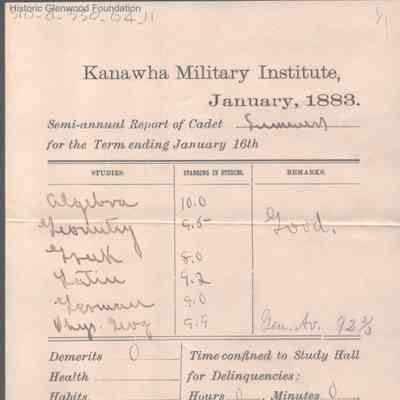 Historic Glenwood Foundation
Kanawha Military Institute,
January, 1883.
Semi-annual Report of Cadet Summers
for the Term ending January 16th
STUDIES. STANDING IN STUDIES. REMARKS.
Algebra 10.0
Geometry 9.5 Good.
Greek 8.0
Latin 9.2
German 9.0
Phys. Geog 9.9 Gen. Av. 92 2/3
Demerits 0 Time confined to Study Hall
Health for Delinquencies:
Habits, Hours 0, Minutes 0,